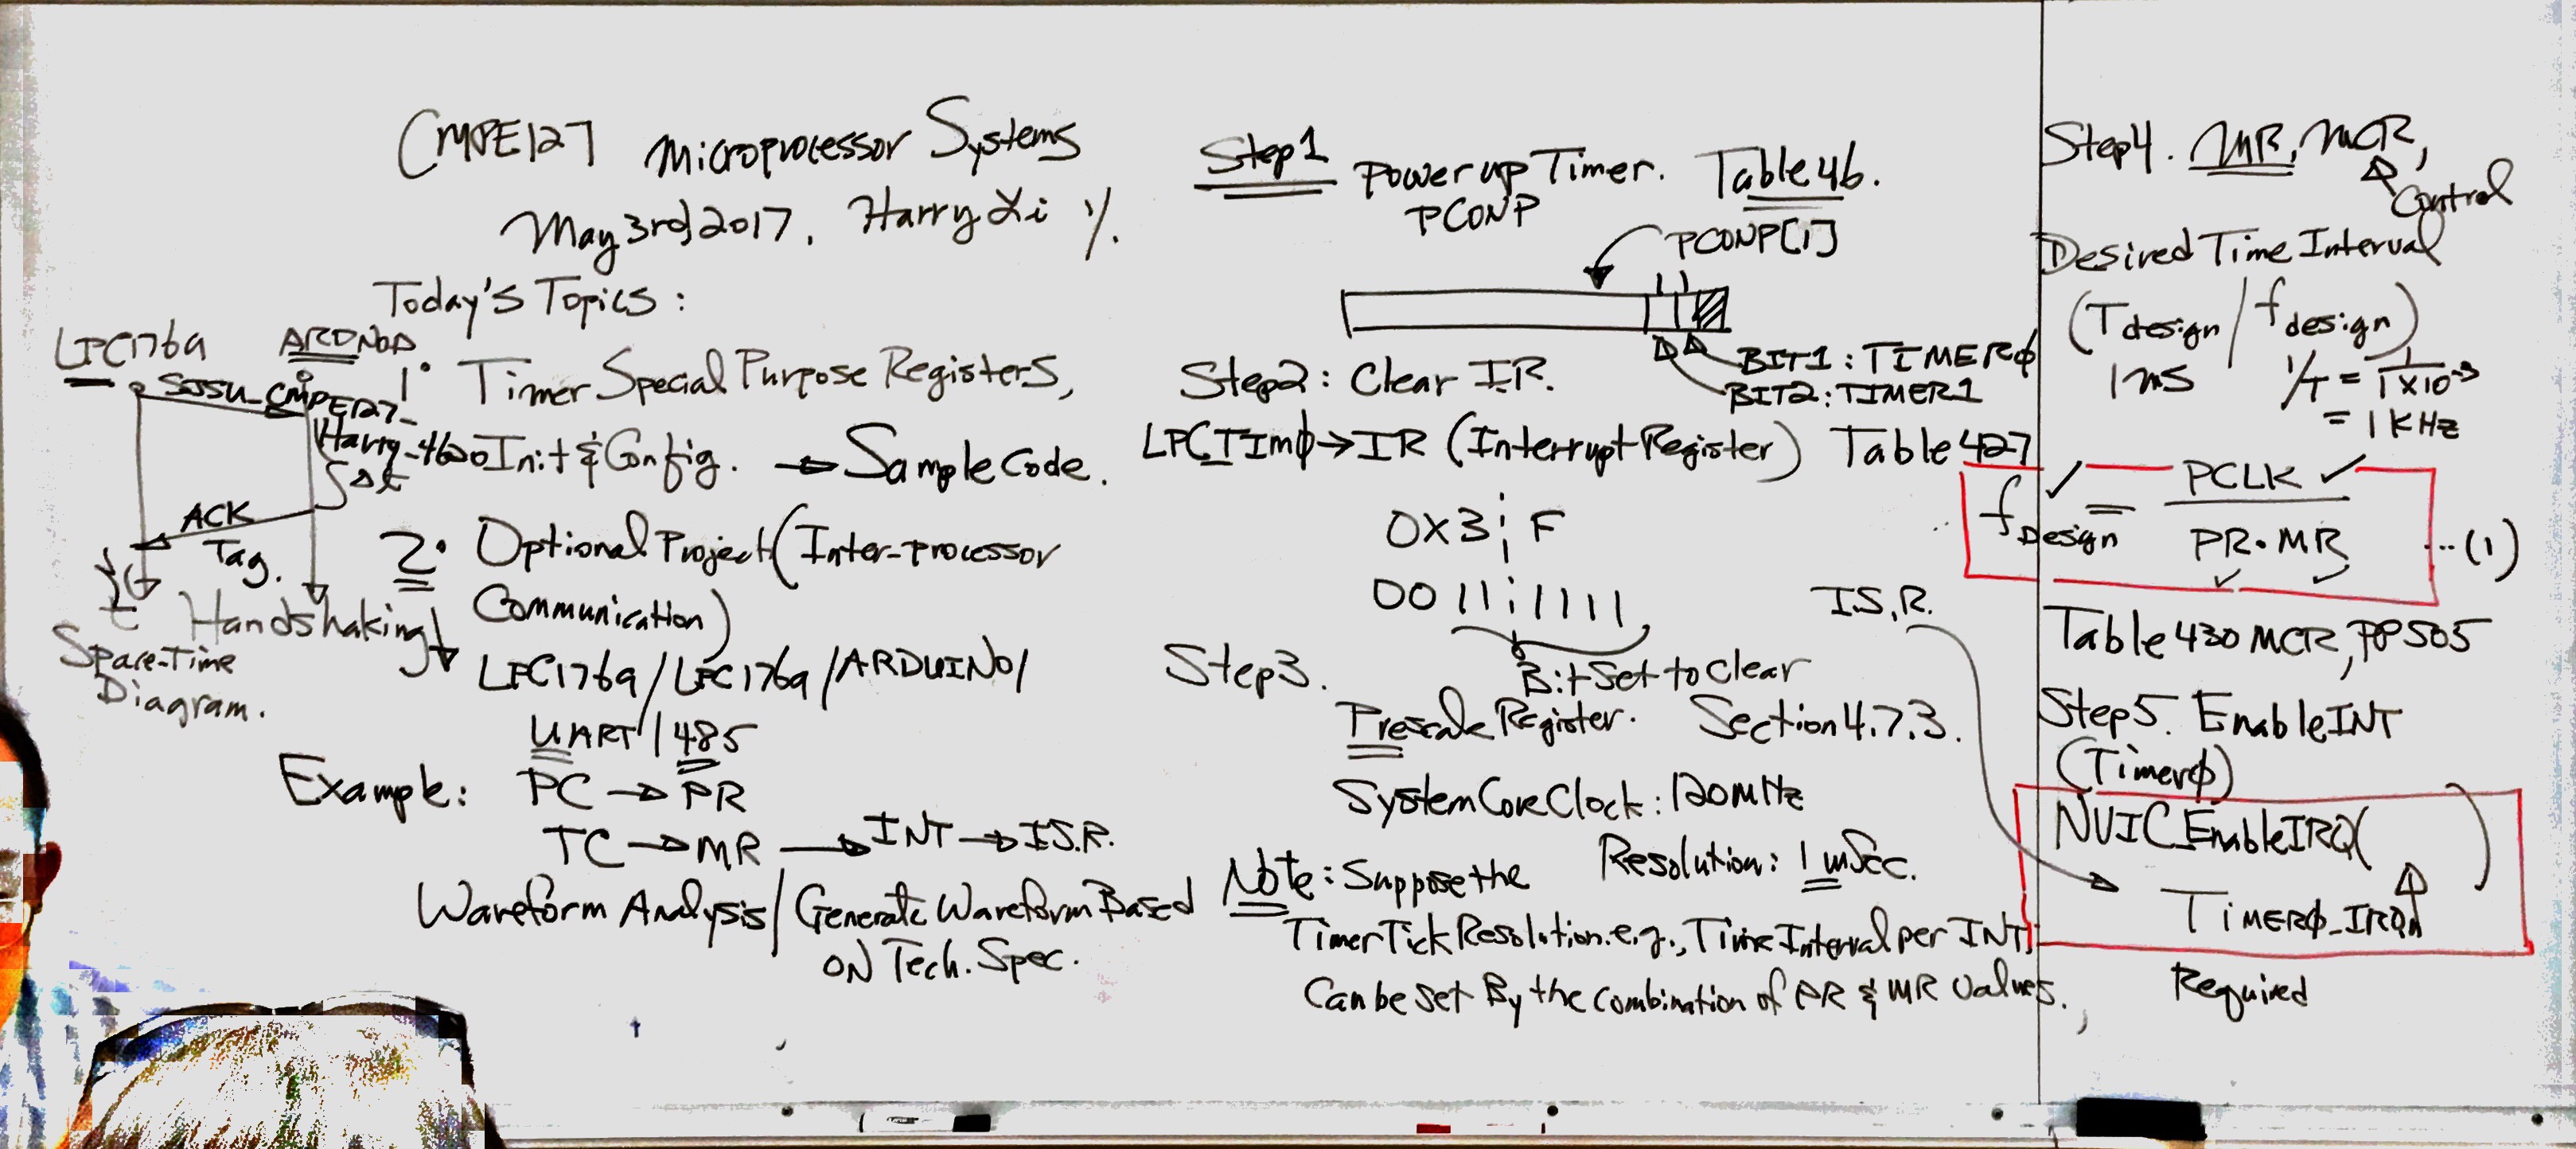 CMPE127 Microprocessor Systems
May 3rd, 2017, Harry Li
Today's Topics:
1° Timer Special Purpose Registers,
Init & Config. → Sample Code.
2° Optional Project (Inter-processor
Communication)
LPC1769/LPC1769/ARDUINO/
UART/485
Example: PC → PR
TC → MR → INT → I.S.R.
Waveform Analysis/Generate Waveform Based
ON Tech. Spec.
LPC1769
SJSU_CMPE127_
Harry_4620
Δt
ACK
Tag.
t
Handshaking
Space-Time
Diagram.
Step1 Power up Timer. Table 46.
PCONP
PCONP[i]
BIT1: TIMERφ
BIT2: TIMER1
Step2: Clear IR.
LPCTIMφ→IR (Interrupt Register) Table 427
0X3 F
0011 1111
Bit Set to Clear
I.S.R.
Step3.
Prescale Register. Section 4.7.3.
System Core Clock: 120MHz
Resolution: 1 mSec.
Note: Suppose the
Timer Tick Resolution. e.g., Time Interval per INT,
Can be set By the combination of PR & MR values.
Step4. MR, MCR,
Control
Desired Time Interval
(Tdesign / fdesign)
1ms 1/T = 1/1X10⁻³
= 1KHz
fDesign = PCLK / PR·MR ...(1)
Table 430 MCR, PP505
Step5. Enable INT
(Timerφ)
NVIC_EnableIRQ(
TiMERφ_IRQn
)
Required